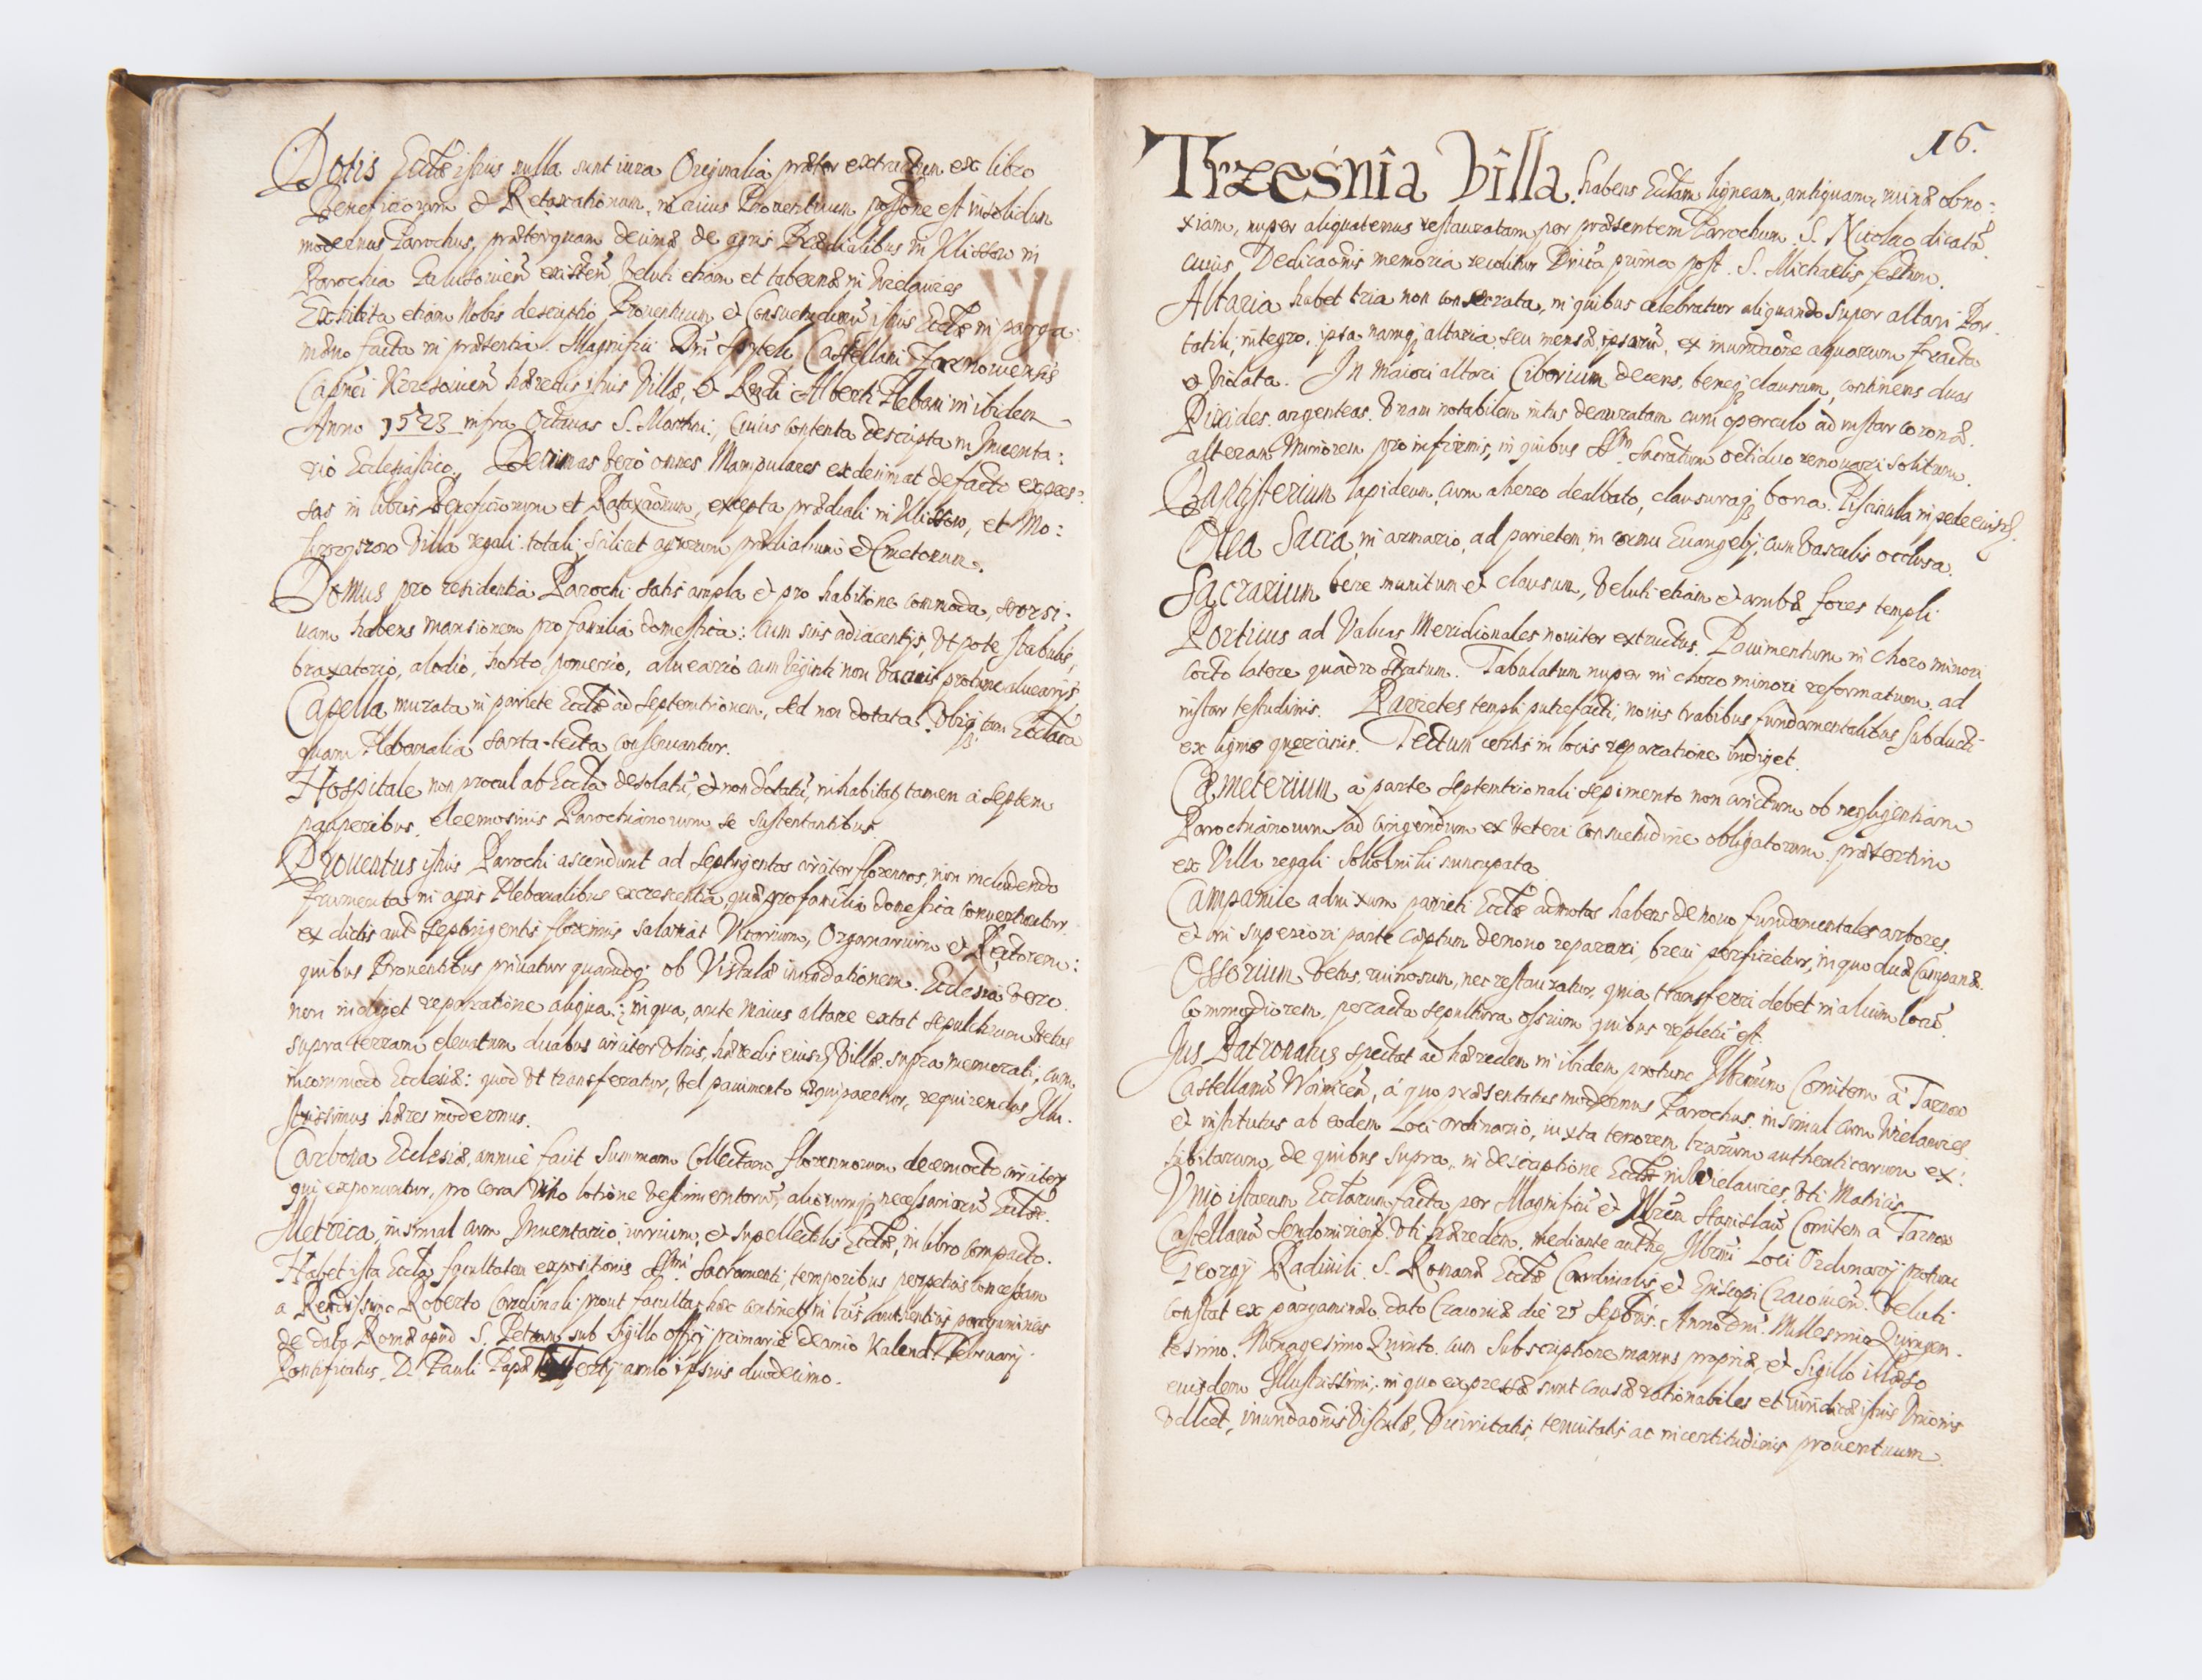 Dotis Ecctæ istius nulla sunt iura Originalia præter extractum ex libro
Beneficiorum et Retaxationum, in cuius Prouentuum possone est insolidum
modernus Parochus, præterquam decimæ de agris Prædialibus in Klissow in
Parochia existen̄ veluti etiam et tabernæ in Wielowies
Exhibita etiam Nobis descriptio Prouentuum et Consuetudinū istius Ecctæ in parga:
meno facta in præsentia Magnifici Dni Spytek Castellani Tarnouiensis
Capnei hæredis istius Villæ, et Rndi Alberti Plebani in ibidem
Anno 1523 infra Octauas S. Martini, Cuius contenta descripta in Inuenta:
rio Ecclesiastico. Decimas vero omnes Manipulares exdecimat defacto expres:
sas in libris Beneficiorum et Rataxāōnum, excepta prædiali in Klissow, et Mo:
villa regali totali scilicet agrorum prædialium et Cmetonum.
Domus pro residentia Parochi satis ampla et pro habitione commoda, seorsi:
uam habens mansionem pro familia domestica: cum suis adiacentijs, vt pote stabulis,
braxatorio, alodio, horto, pomerio, alueario cum viginti non vacuis protunc aluearijs
Capella murata in pariete Ecctæ ad septemtrionem, sed non dotata. Vbiq tam Ecctastica
quam Plebanalia sarta-tecta conseruantur.
Hospitale non procul ab Eccta desolatū, et non dotatū, inhabitat tamen a septem
pauperibus, eleemosinis Parochianorum se sustentantibus.
Prouentus istius Parochi ascendunt ad septingentos circiter florenos, non includendo
frumenta in agris Plebanalibus excrescentia, quæ pro familia domestica conuertuntur.
ex dictis aut septingentis florenis salariat Vicarium, Organarium et Rectorem:
quibus Prouentibus priuatur quandoq ob Vistulæ inundationem. Ecclesia vero
non indiget reparatione aliqua: in qua, ante maius altare extat sepulchrum vetus
supra terram eleuatum duabus circiter vlnis, hæredis eiusd Villæ supra memorati, cum
incommodo Ecclesiæ: quod vt transferatur, vel pauimento æquiparetur, requirendus Illu.
strissimus hæres modernus.
Carbona Ecclesiæ, annue facit summam Collectam florenorum decemocto circiter
qui exponuntur, pro cera vino lotione vestimentorū, aliorumq necessariorū Ecctæ.
Metrica, insimul cum Inuentario iurium, et supellectilis Ecctæ, in libro compacto.
Habet ista Eccta facultatem expositionis Ssmi Sacramenti, temporibus perpetuis concessam
a Reuerendissimo Roberto Cardinali prout facultas hæc continetur in tris authenticis pargamineis
de dato Romæ apud S. Petrum sub sigillo officij primariæ decimo Kalend: Februarij
Pontificatus. D. Pauli Papæ Tertij anno ipsius duodecimo.
16.
Trześnia Villa, habens Ecctam ligneam, antiquam, ruinæ obno:
xiam, nuper aliquatenus restauratam per præsentem Parochum S. Nicolao dicatā
cuius Dedicaōnis memoria recolitur Dnica prima post S. Michaelis festum.
Altaria habet tria non consecrata, in quibus celebratur aliquando super altari Por:
tatili, integro, ipsa namq altaria seu mensæ ipsarū, ex inundāōne aquarum fracta
et violata. In maiori altari Ciborium decens, beneq clausum, continens duas
Pixides argenteas. Vnam notabilem intus deauratam cum operculo ad instar coronæ.
alteram Minorem pro infirmis, in quibus Ssm Sacratum octiduo renouari solitum.
Baptisterium lapideum cum aheneo dealbato, clausuraq bona. Piscinula in pede eiusd.
Olea Sacra, in armario, ad parietem in cornu Euangelij, cum vasculis occlusa.
Sacrarium bene munitum et clausum, veluti etiam et ambæ fores templi
Porticus ad Valuas Meridionales nouiter extructus. Pauimentum in choro minori
cocto latere quadro stratum. Tabulatum nuper in choro minori reformatum ad
instar testudinis. Parietes templi putrefacti, nouis trabibus fundamentalibus subducti
ex ligno quęrcinis. Tectum certis in locis reparatione indiget.
Cæmeterium a parte septemtrionali sepimento non cinctum ob negligentiam
Parochianorum ad cingendum ex veteri consuetudine obligatorum, præsertim
ex Villa regali Sokolniki nuncupata
Campanile adnixum parieti Ecctæ admotas habens denouo fundamentales arbores
et in superiori parte cæptum denouo reparari, breui perficietur, in quo duæ Campanæ.
Ossorium vetus, ruinosum, nec restauratur, quia transferri debet in alium locū
commodiorem, peracta sepultura ossium quibus repletū est.
Jus Patronatus spectat ad hæredem in ibidem protunc Illrmum Comitem a Tarnow
Castellanū Woinicen̄, a quo præsentatus modernus Parochus, insimul cum Wielowies
et institutus ab eodem Loci ordinario, iuxta tenorem trarum authenticarum ex:
hibitarum, de quibus supra, in descriptione Ecctæ in Wielowies, vti Matricis.
Vnio istarum Ecctarum facta per Magnificū et Illrem Stanislaū Comitem a Tarnow
Castellanū Sendomirien̄ vti hæredem, mediante authe Illrmi Loci Ordinarij protunc
Georgij Radiuili S. Romanæ Ecctæ Cardinalis et Episcopi Cracouien̄. Veluti
constat ex pargamineo dato Cracouiæ die 25 Septbris. Anno Dni Millesimo Quingen.
tesimo Nonagesimo Quinto, cum subscriptione manus propriæ, et sigillo illæso
eiusdem Illustrissimi, in quo expressæ sunt causæ rationabiles et iuridicæ istius Vnionis
videlicet, inundaōnis Vistulæ, Vicinitatis, tenuitatis ac incertitudinis prouentuum.